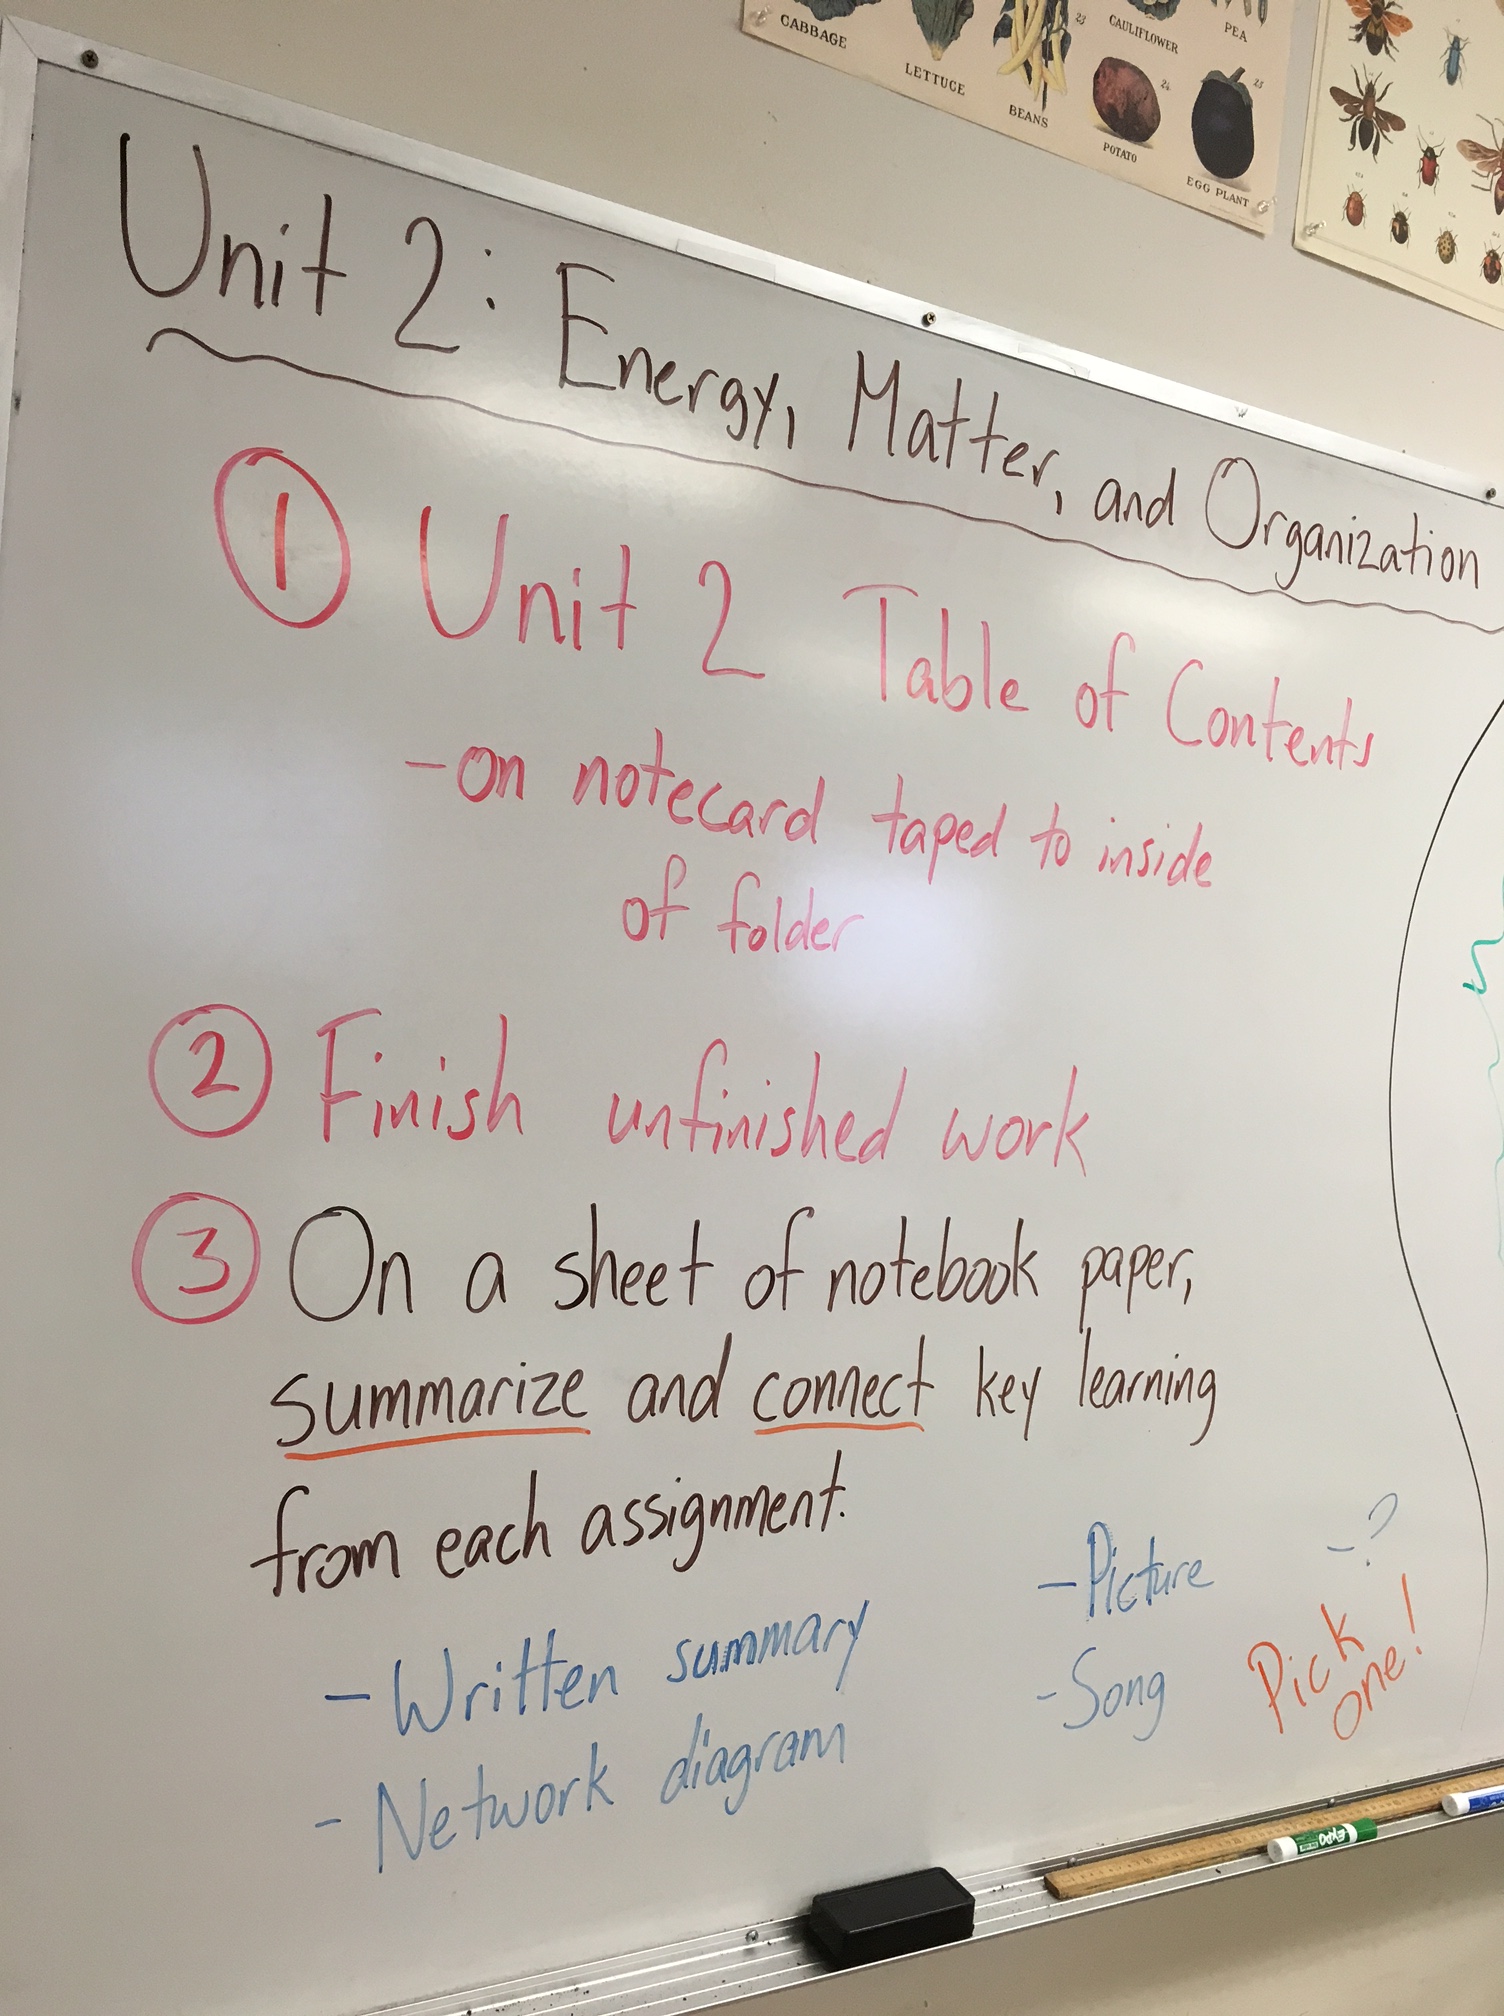 CABBAGE
LETTUCE
23
BEANS
CAULIFLOWER
PEA
24
POTATO
25
EGG PLANT
Unit 2: Energy, Matter, and Organization
1 Unit 2 Table of Contents
-on notecard taped to inside
of folder
2 Finish unfinished work
3 On a sheet of notebook paper,
summarize and connect key learning
from each assignment.
-Written summary
-Network diagram
-Picture
-Song
-?
Pick
one!
EXPO